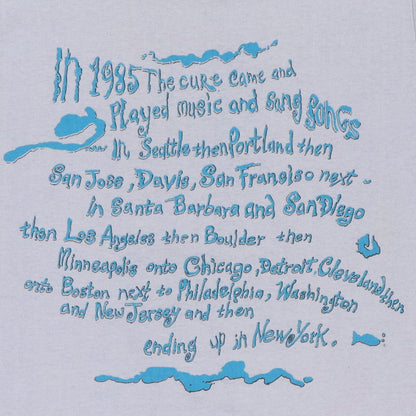 In 1985 The cure came and
Played music and sang songs
In Seattle then Portland then
San Jose, Davis, San Fransiso next -
in Santa Barbara and San Diego
then Los Angeles then Boulder then
Minneapolis onto Chicago, Detroit, Cleveland, then
onto Boston next to Philadelphia, Washington
and New Jersey and then
ending up in New York.